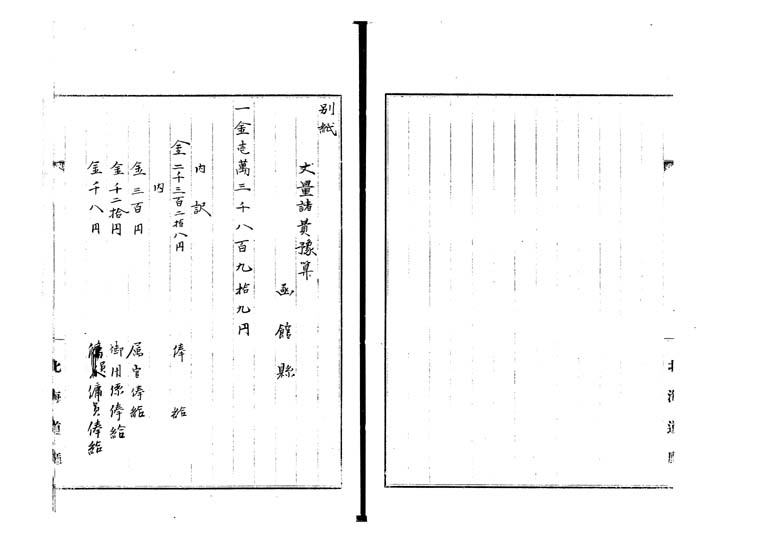 北海道廳
別紙
丈量諸費豫算
函館縣
一金壱萬三千八百九拾九円
内訳
金二千三百二拾八円 俸給
内
金三百円 属官俸給
金千二拾円 御用係俸給
金千八円 傭員俸給
北海道廳